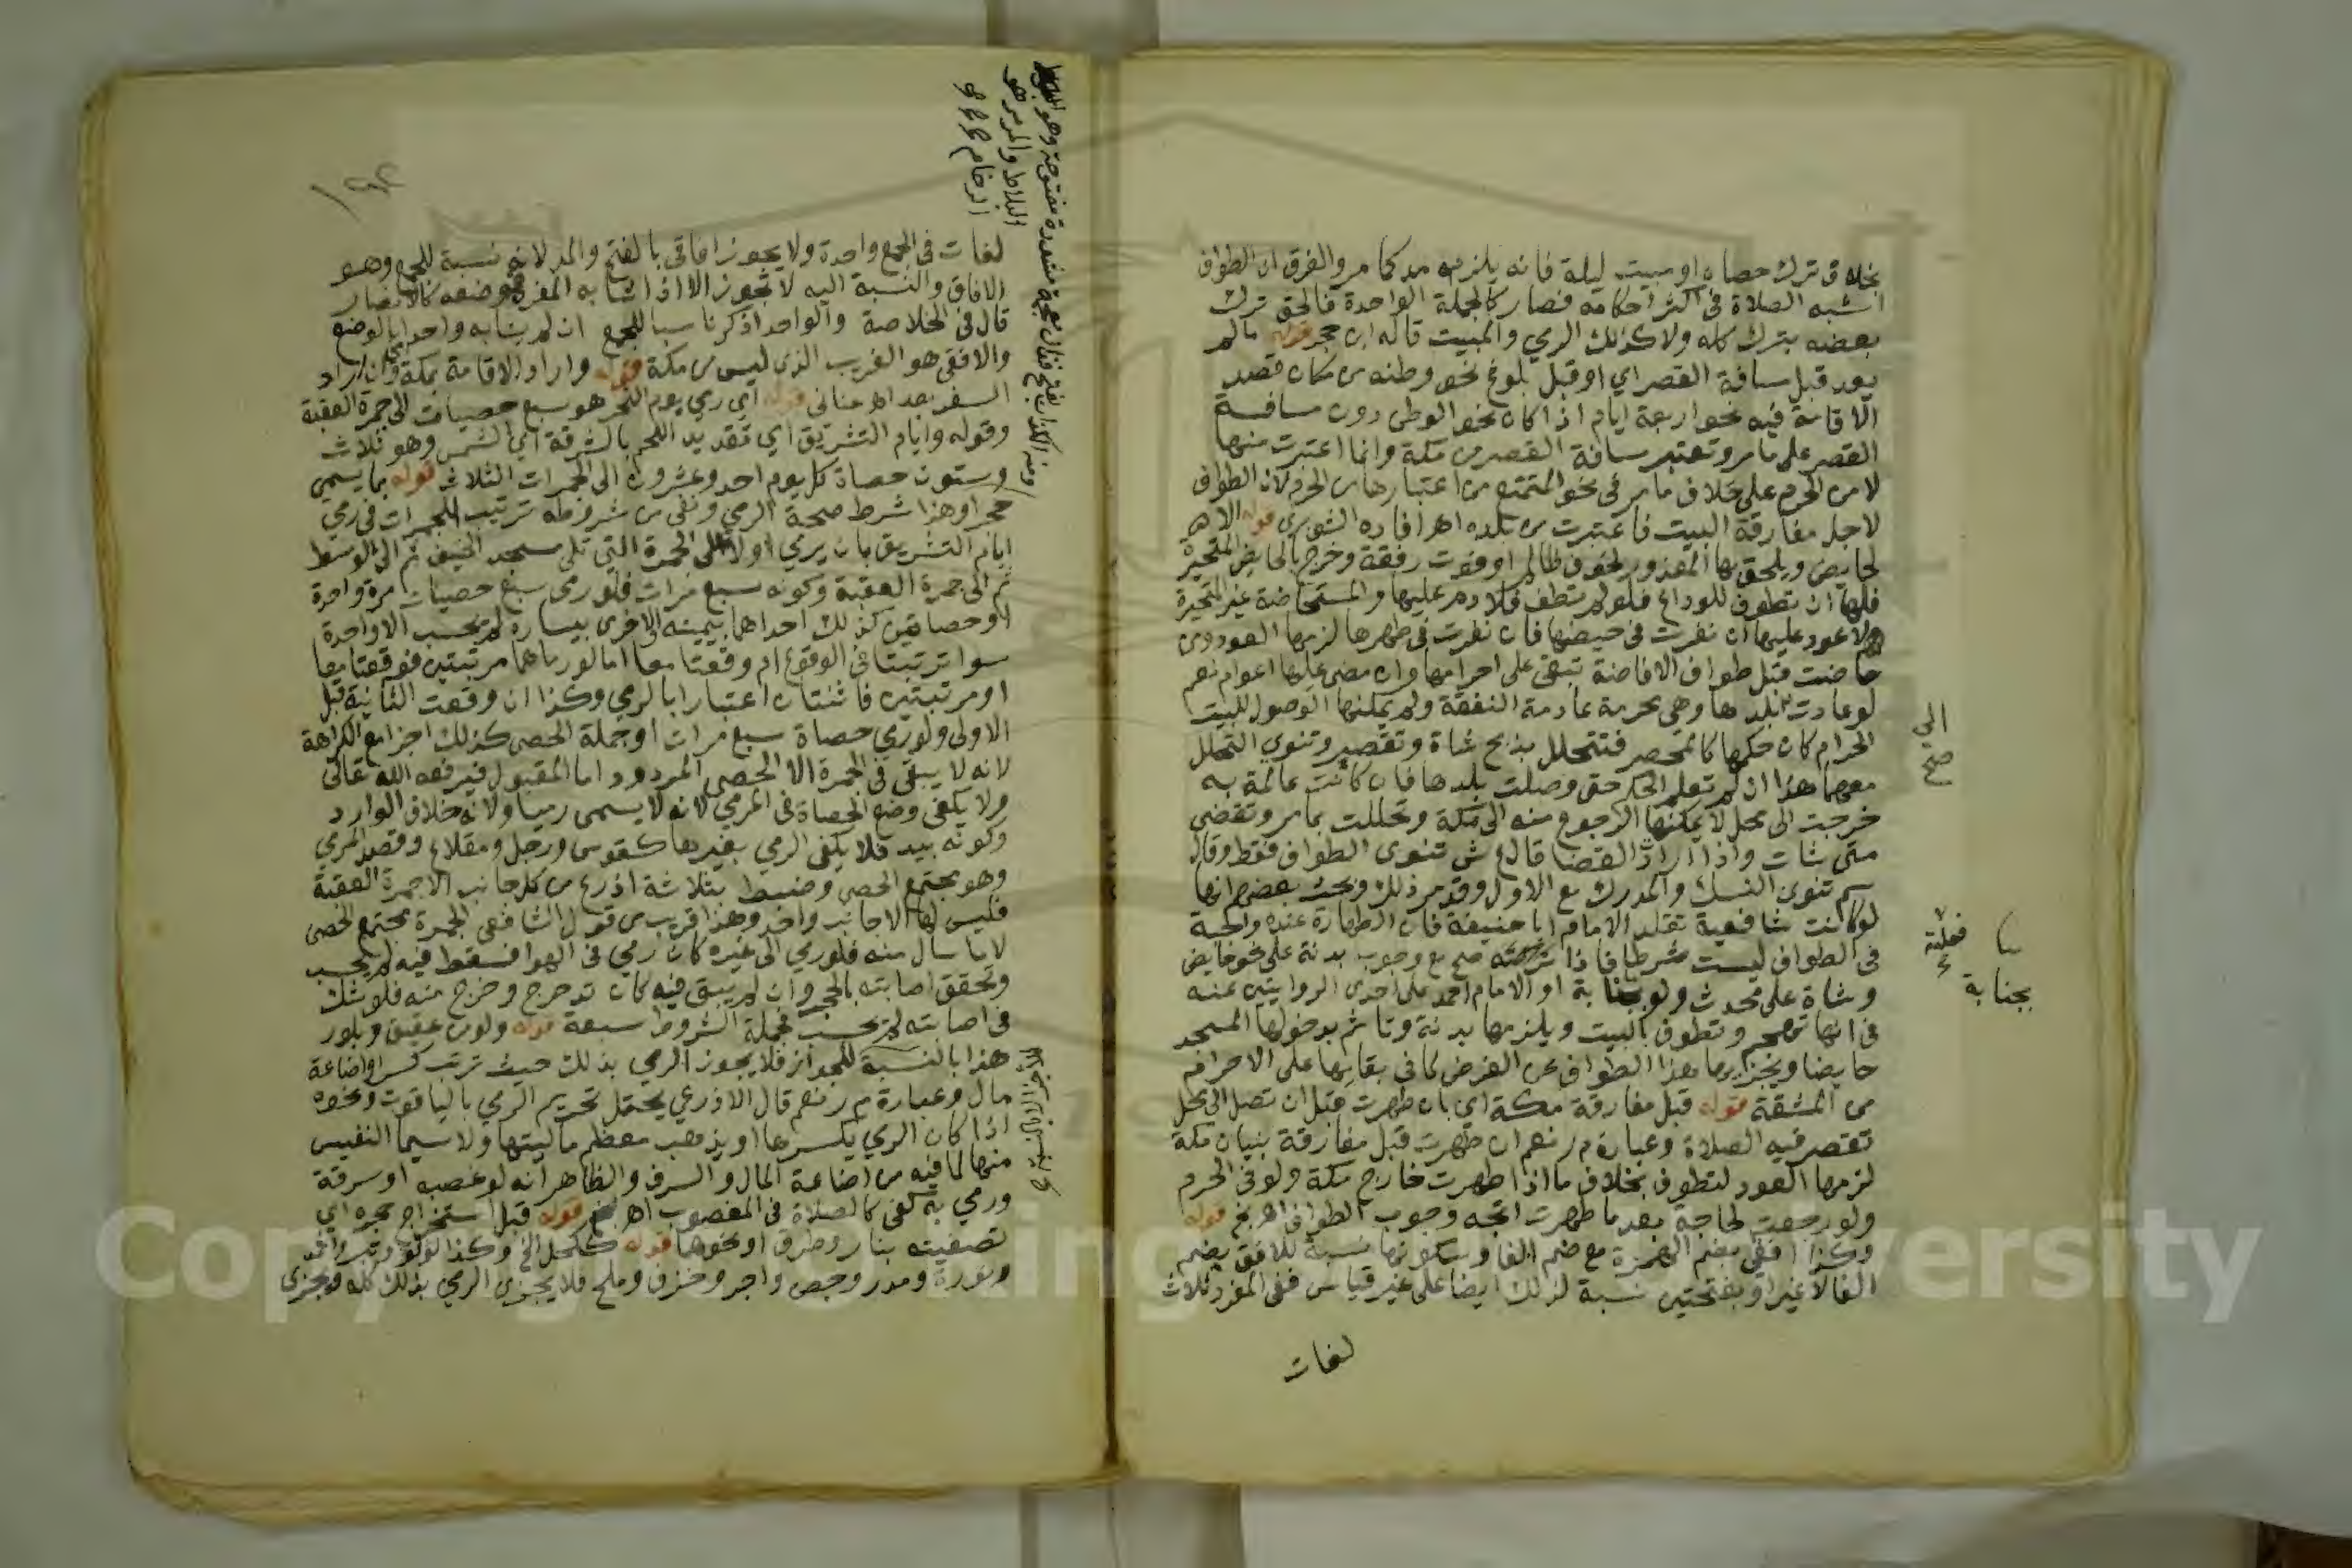 بخلاف ترك حصاه او مبيت ليلة فانه يلزمه مد كما مر والفرق ان الطواف
اشبه الصلاة في اكثر احكامه فصار كالجملة الواحدة فالحق ترك
بعضه بترك كله ولا كذلك الرمي والمبيت قاله ابن حجر قوله ما لم
يعد قبل مسافة القصر اي او قبل بلوغ نحو وطنه من مكان قصد
الاقامة فيه نحو اربعة ايام اذا كان نحو الوطن دون مسافة
القصر على ما مر وتعتبر مسافة القصر من مكة وانما اعتبرت منها
لا من الحرم على خلاف ما مر في نحو المتمتع من اعتبارها من الحرم لان الطواف
لاجل مفارقة البيت فاعتبرت من بلده اهر افاده الشوبري قوله الا
لحايض ويلحق بها المعذور لخوف ظالم او فوت رفقة وخرج بالحايض المتحيرة
فلها ان تطوف للوداع فلو لم تطف فلا دم عليها والمستحاضة غير المتحيرة
ولا عود عليها ان نفرت في حيضها فان نفرت في طهرها لزمها العود ومن
حاضت قبل طواف الافاضة تبقى على احرامها وان مضى عليها اعوام نعم
لو عادت لبلدها وهي محرمة عادمة النفقة ولم يمكنها الوصول للبيت
الحرام كان حكمها كالمحصر فتتحلل بذبح شاة وتقصير وتنوي التحلل
هذا ان لم تعلم الحكم حتى وصلت بلدها فان كانت عالمة به
خرجت الى محل لا يمكنها الرجوع منه الى مكة وتحللت بما مر وتقضي
متى شات واذا ارادت القضا قال ع ش تنوي الطواف فقط وقال
سم تنوي النسك والمدرك مع الاول وقد مر ذلك وبحث بعضهم انها
لو كانت شافعية تقلد الامام ابا حنيفة فان الطهارة عنده واجبة
في الطواف ليست شرطا فاذا تركته صح مع وجوب بدنة على نحو حايض
وشاة على محدث ولو بجنابة او الامام احمد على احدى الروايتين عنه
في انها تهجم وتطوف بالبيت ويلزمها بدنة وتاثم بدخولها المسجد
حايضا ويجزيها هذا الطواف عن الفرض لما في بقائها على الاحرام
من المشقة قوله قبل مفارقة مكة اي بان طهرت قبل ان تصل الى محل
تقصر فيه الصلاة وعبارة م ر نعم ان طهرت قبل مفارقة بنيان مكة
لزمها العود لتطوف بخلاف ما اذا طهرت خارج مكة ولو في الحرم
ولو رجعت لحاجة بعد ما طهرت اتجه وجوب الطواف اهر قوله
وكذا افقي بضم الهمزة مع ضم الفا وسكونها نسبة للافق بضم
الفا لا غير او بفتحتين نسبة لذلك ايضا على غير قياس ففي المفرد ثلاث
لغات
الى
صح
بجنابة
لغات في الجمع واحدة ولا يجوز افاقي بالفتح والمد لانه نسبة للجمع وهو
الافاق والنسبة اليه لا تجوز الا اذا شابه المفرد بوضعه كالانصار
قال في الخلاصة والواحد اذكر ناسبا للجمع ان لم يشابه واحدا بالوضع
والافقي هو الغريب الذي ليس من مكة قوله واراد الاقامة بمكة وان اراد
السفر بعد اهر عناني قوله اي رمي يوم النحر هو سبع حصيات الى جمرة العقبة
وقوله وايام التشريق اي تقديد اللحم بالشرقة اي الشمس وهو ثلاث
وستون حصاة كل يوم احد وعشرون الى الجمرات الثلاث قوله بما يسمى
حجرا وهذا شرط صحة الرمي وبقي من شروطه ترتيب للجمرات في رمي
ايام التشريق بان يرمي اولا الى الجمرة التي تلي مسجد الخيف ثم الى الوسطى
ثم الى جمرة العقبة وكونه سبع مرات فلو رمى سبع حصيات مرة واحدة
او حصاتين كذلك احداهما بيمينه والاخرى بيساره لم يحسب الا واحدة
سوا ترتبتا في الوقوع ام وقعتا معا اما لو رماهما مرتبتين فوقعتا معا
او مرتبتين فاثنتان اعتبارا بالرمي وكذا ان وقعت الثانية قبل
الاولى ولو رمي حصاة سبع مرات او جملة الحصى كذلك اجزا مع الكراهة
لانه لا يبقى في الجمرة الا الحصى المردود اما المقبول فيرفعه الله تعالى
ولا يكفي وضع الحصاة في المرمي لانه لا يسمى رميا ولانه خلاف الوارد
وكونه بيد فلا يكفي الرمي بغيرها كقوس ورجل ومقلاع وقصد المرمي
وهو مجتمع الحصى وضبط بثلاثة اذرع من كل جانب الا جمرة العقبة
فليس لها الا جانب واحد وهذا قريب من قول الشافعي الجمرة مجتمع الحصى
لا ما سال منه فلو رمي الى غيره كان رمي في الهوا فسقط فيه لم يحسب
وتحقق اصابته بالحجر وان لم يبق فيه كان تدحرج وخرج منه فلو شك
في اصابته لم يحسب فجملة الشروط سبعة قوله ولو من عقيق وبلور
هذا بالنسبة للجواز فلا يجوز الرمي بذلك حيث ترتب كسر او اضاعة
مال وعبارة م ر نعم قال الاذرعي يحتمل تحريم الرمي بالياقوت ونحوه
اذا كان الرمي يكسرها او يذهب معظم ماليتها ولا سيما النفيس
منها لما فيه من اضاعة المال والسرف والظاهر انه لو غصبه او سرقة
ورمي به كفى كالصلاة في المغصوب اهر قوله قبل استخراج جوهره اي
تصفيته بنار وطرق او نحوهما قوله ككحل الخ وكذا لولؤ وتبر واثمد
ونورة ومدر وجص واجر وخزف وملح فلا يجزي الرمي بذلك كله ويجزي
البلاط والمرمر هو
الرخام